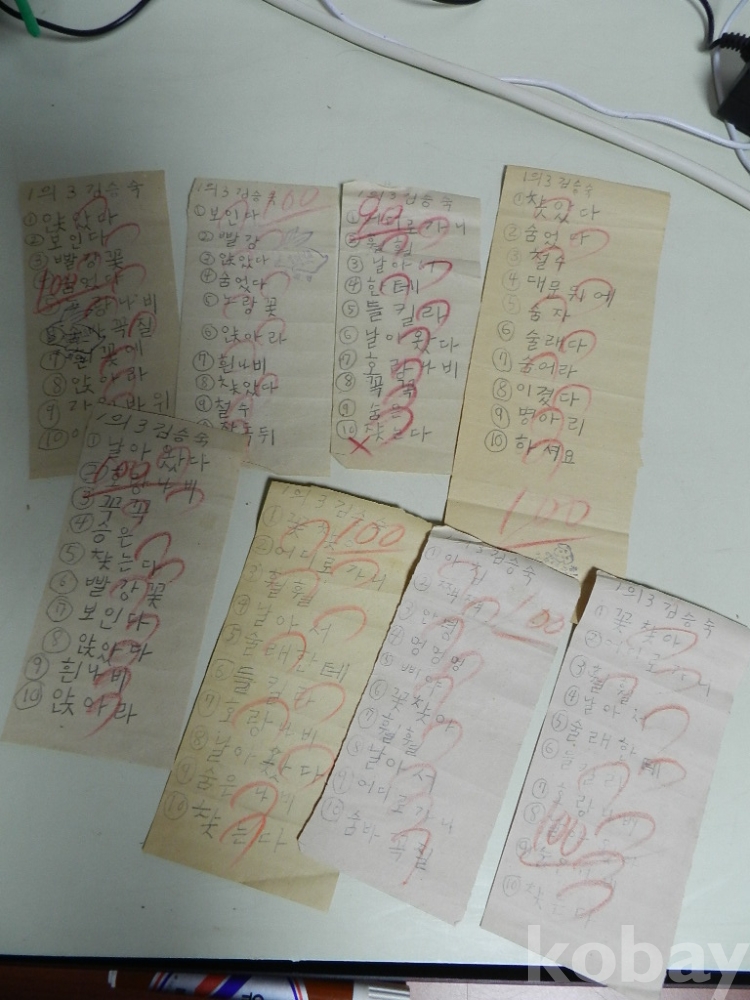 1의3 김승숙
① 앉았아
② 보인다
③ 빨강꽃
100
나비
꼭질
꽃에
⑧ 앉아라
⑨
⑩
1의3 김승숙 100
① 보인다
② 빨강
③ 앉았다
④ 숨었다
⑤ 노랑꽃
⑥ 앉아라
⑦ 흰나비
⑧ 찾았다
⑨ 철수
장독뒤
1의3 김승숙
90
① 어디로가니
② 훨훨
③ 날아
④ 한테
⑤ 들킬라
⑥ 날아왔다
⑦ 호랑나비
⑧ 꼭꼭
⑨ 숨은
⑩ 찾는다
1의3 김승숙
① 찾았다
② 숨었다
③ 철수
④ 대문뒤에
⑤ 숨자
⑥ 술래다
⑦ 숨어라
⑧ 이겼다
⑨ 병아리
⑩ 하셔요
100
1의3 김승숙
① 날아왔다
100
② 호랑나비
③ 꼭꼭
④ 숨은
⑤ 찾는다
⑥ 빨강꽃
⑦ 보인다
⑧ 앉았다
⑨ 흰나비
⑩ 앉아라
① 꽃 100
② 어디로가니
③ 훨훨
④ 날아서
⑤ 술래한테
⑥ 들킬라
⑦ 호랑나비
⑧ 날아왔다
⑨ 숨은
⑩ 찾는다
1의3 김승숙
① 아침
② 짹짹 100
③ 안녕
④ 멍멍멍
⑤ 삐약
⑥ 꽃찾아
⑦ 훨훨
⑧ 날아서
⑨ 어디로가니
⑩ 숨바꼭질
1의3 김승숙
① 꽃찾아
② 어디로가니
③ 훨훨
④ 날아서
⑤ 술래한테
⑥ 들킬라
⑦ 호랑나비
⑧
100
⑨
⑩ 찾는다
kobay